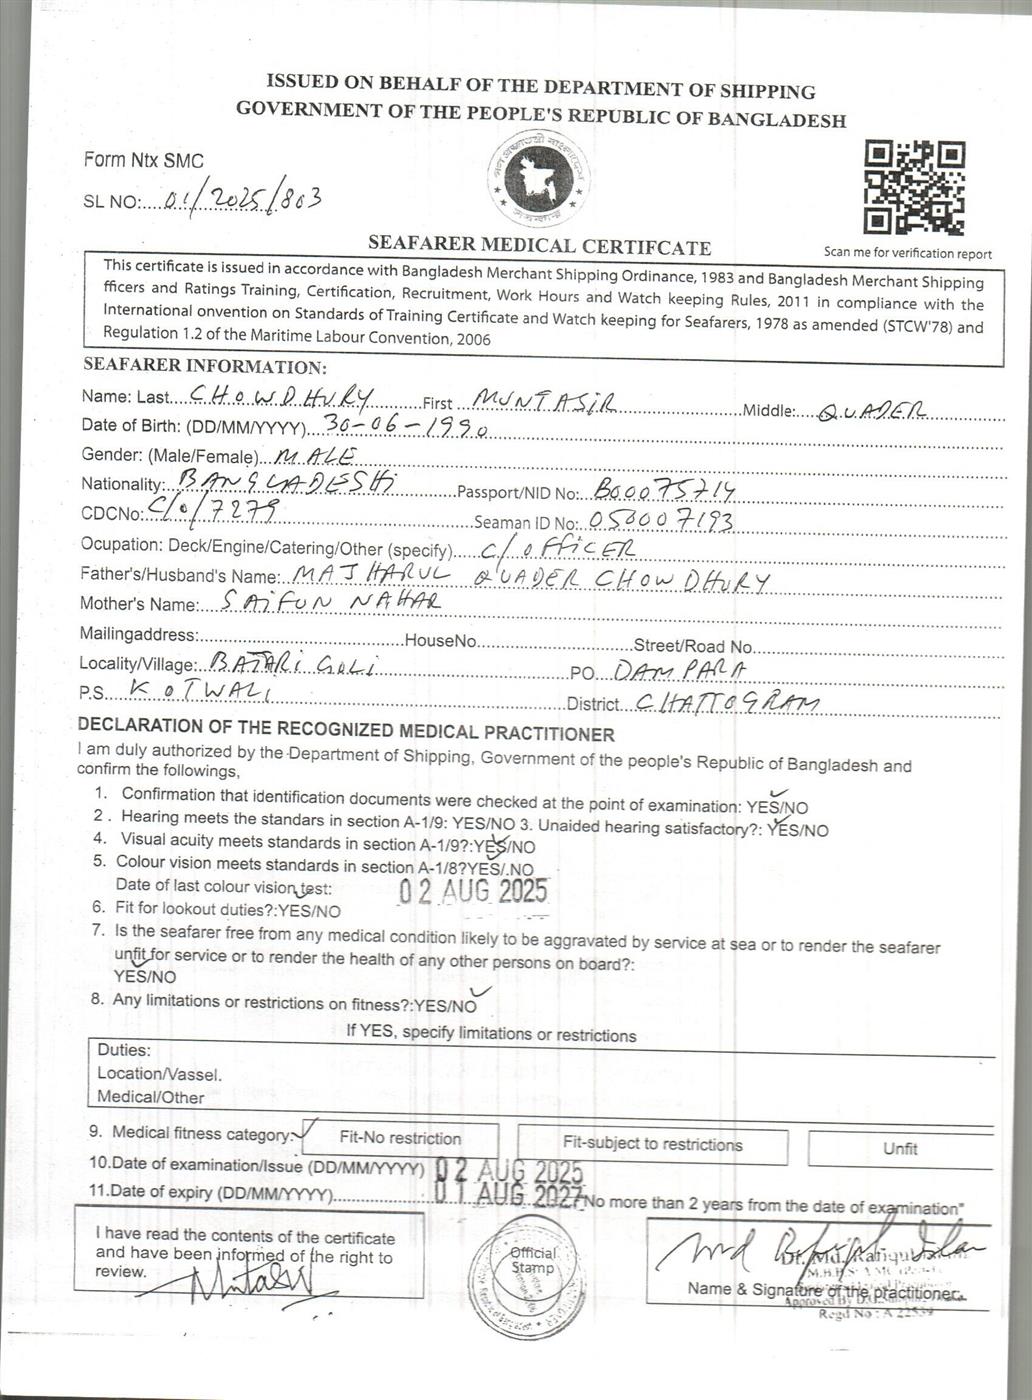 ISSUED ON BEHALF OF THE DEPARTMENT OF SHIPPING
GOVERNMENT OF THE PEOPLE'S REPUBLIC OF BANGLADESH
Form Ntx SMC
SL NO:....01/2025/803
SEAFARER MEDICAL CERTIFCATE
Scan me for verification report
This certificate is issued in accordance with Bangladesh Merchant Shipping Ordinance, 1983 and Bangladesh Merchant Shipping
fficers and Ratings Training, Certification, Recruitment, Work Hours and Watch keeping Rules, 2011 in compliance with the
International onvention on Standards of Training Certificate and Watch keeping for Seafarers, 1978 as amended (STCW'78) and
Regulation 1.2 of the Maritime Labour Convention, 2006
SEAFARER INFORMATION:
Name: Last....CHOWDHURY........First...MUNTASIR........Middle:....QUADER
Date of Birth: (DD/MM/YYYY)...30-06-1990
Gender: (Male/Female)...MALE
Nationality:..BANGLADESHI........Passport/NID No:..B00075714
CDCNo:C/O/7279........Seaman ID No:.050007193
Ocupation: Deck/Engine/Catering/Other (specify).....C/OFFICER
Father's/Husband's Name:..MAJHARUL QUADER CHOWDHURY
Mother's Name:...SAIFUN NAHAR
Mailingaddress:........HouseNo........Street/Road No.
Locality/Village:..BATARI GOLI........PO...DAMPARA
P.S....KOTWALI........District...CHATTOGRAM
DECLARATION OF THE RECOGNIZED MEDICAL PRACTITIONER
I am duly authorized by the Department of Shipping, Government of the people's Republic of Bangladesh and
confirm the followings,
1. Confirmation that identification documents were checked at the point of examination: YES/NO
2 . Hearing meets the standars in section A-1/9: YES/NO 3. Unaided hearing satisfactory?: YES/NO
4. Visual acuity meets standards in section A-1/9?:YES/NO
5. Colour vision meets standards in section A-1/8?YES/.NO
Date of last colour vision test: 02 AUG 2025
6. Fit for lookout duties?:YES/NO
7. Is the seafarer free from any medical condition likely to be aggravated by service at sea or to render the seafarer
unfit for service or to render the health of any other persons on board?:
YES/NO
8. Any limitations or restrictions on fitness?:YES/NO
If YES, specify limitations or restrictions
Duties:
Location/Vassel.
Medical/Other
9. Medical fitness category: Fit-No restriction Fit-subject to restrictions Unfit
10.Date of examination/Issue (DD/MM/YYYY) 02 AUG 2025
11.Date of expiry (DD/MM/YYYY)........01 AUG 2027 No more than 2 years from the date of examination"
I have read the contents of the certificate
and have been informed of the right to
review.
Official
Stamp
Dr. Md. Rafiqul
Name & Signature of the practitioner.
Approved By
Regd No : A 22539